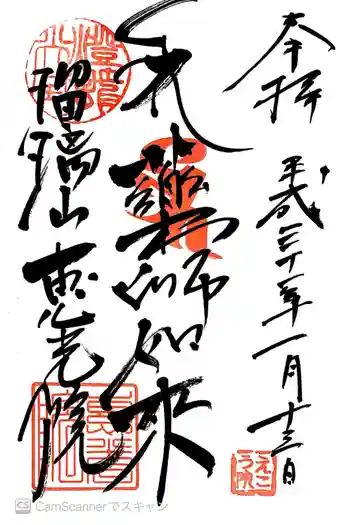 奉拝
平成三十一年一月十三日
薬師如来
瑠璃山
恵光院
えこう院
CamScannerでスキャン